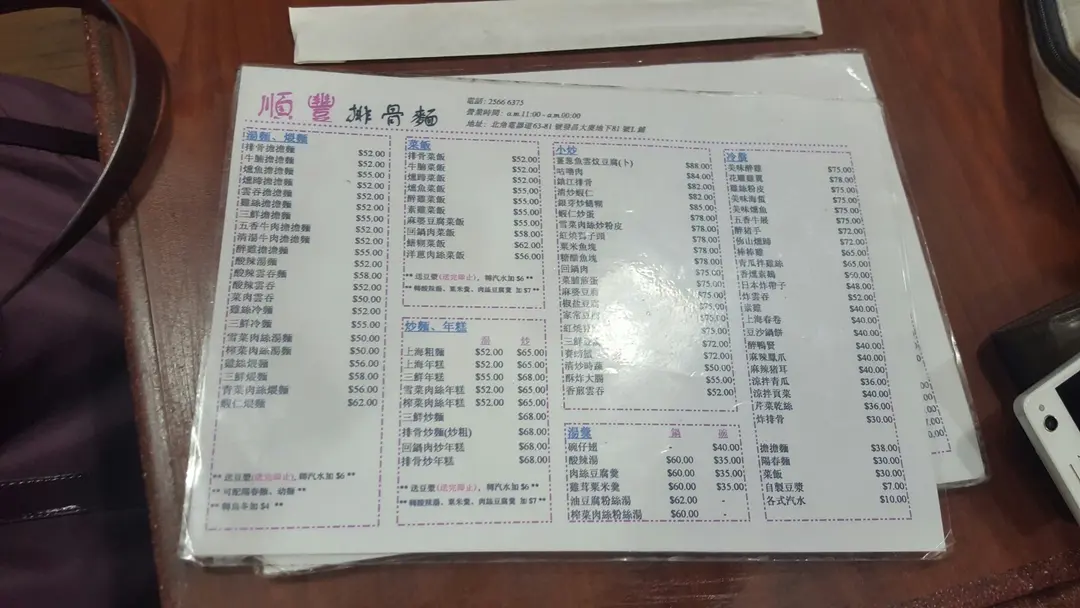 順豐排骨麵
電話: 2566 6375
營業時間: a.m.11:00 - a.m.00:00
地址: 北角電器道63-81 號發昌大廈地下81 號L 鋪
湯麵、煨麵
排骨擔擔麵 $52.00
牛腩擔擔麵 $52.00
燻魚擔擔麵 $55.00
燻蹄擔擔麵 $52.00
雲吞擔擔麵 $52.00
雞絲擔擔麵 $52.00
三鮮擔擔麵 $55.00
五香牛肉擔擔麵 $52.00
清湯牛肉擔擔麵 $52.00
醉雞擔擔麵 $55.00
酸辣湯麵 $52.00
酸辣雲吞麵 $58.00
酸辣雲吞 $52.00
菜肉雲吞 $50.00
雞絲冷麵 $52.00
三鮮冷麵 $55.00
雪菜肉絲湯麵 $50.00
榨菜肉絲湯麵 $50.00
雞絲煨麵 $56.00
三鮮煨麵 $58.00
青菜肉絲煨麵 $56.00
蝦仁煨麵 $62.00
** 送豆漿(送完即止), 轉汽水加 $6 **
** 可配陽春麵、幼麵 **
** 轉烏冬加 $4 **
菜飯
排骨菜飯 $52.00
牛腩菜飯 $52.00
燻蹄菜飯 $52.00
燻魚菜飯 $55.00
醉雞菜飯 $55.00
素雞菜飯 $55.00
麻婆豆腐菜飯 $55.00
回鍋肉菜飯 $58.00
鱔糊菜飯 $62.00
洋蔥肉絲菜飯 $56.00
** 送豆漿(送完即止), 轉汽水加 $6 **
** 轉酸辣湯、粟米羹、肉絲豆腐羹 加 $7 **
炒麵、年糕
湯 炒
上海粗麵 $52.00 $65.00
上海年糕 $52.00 $65.00
三鮮年糕 $55.00 $68.00
雪菜肉絲年糕 $52.00 $65.00
榨菜肉絲年糕 $52.00 $65.00
三鮮炒麵 $68.00
排骨炒麵(炒粗) $68.00
回鍋肉炒年糕 $68.00
排骨炒年糕 $68.00
** 送豆漿(送完即止), 轉汽水加 $6 **
** 轉酸辣湯、粟米羹、肉絲豆腐羹 加 $7 **
小炒
薑蔥魚雲炆豆腐(卜) $88.00
咕嚕肉 $84.00
鎮江排骨 $82.00
清炒蝦仁 $82.00
銀芽炒鱔糊 $85.00
蝦仁炒蛋 $78.00
雪菜肉絲炒粉皮 $78.00
紅燒獅子頭 $78.00
粟米魚塊 $78.00
糖醋魚塊 $78.00
回鍋肉 $75.00
菜脯煎蛋 $75.00
麻婆豆腐 $75.00
椒鹽豆腐 $75.00
家常豆腐 $75.00
$75.00
$72.00
賽螃蟹 $72.00
清炒時蔬 $50.00
酥炸大腸 $55.00
香煎雲吞 $52.00
湯羹
鍋 碗
碗仔翅 $40.00
酸辣湯 $60.00 $35.00
肉絲豆腐羹 $60.00 $35.00
雞茸粟米羹 $60.00 $35.00
油豆腐粉絲湯 $62.00 -
榨菜肉絲粉絲湯 $60.00 -
冷盤
美味醉雞 $75.00
花雕雞翼 $78.00
雞絲粉皮 $75.00
美味海蜇 $75.00
美味燻魚 $75.00
五香牛𦟌 $75.00
醉豬手 $72.00
佛山燻蹄 $72.00
棒棒雞 $65.00
青瓜拌雞絲 $65.00
香燻素鵝 $50.00
日本炸帶子 $48.00
炸雲吞 $52.00
素雞 $40.00
上海春卷 $40.00
豆沙鍋餅 $40.00
醉鴨腎 $40.00
麻辣鳳爪 $40.00
麻辣豬耳 $40.00
涼拌青瓜 $36.00
涼拌頁菜 $40.00
芹菜乾絲 $36.00
炸排骨 $30.00
擔擔麵 $38.00
陽春麵 $30.00
菜飯 $30.00
自製豆漿 $7.00
各式汽水 $10.00